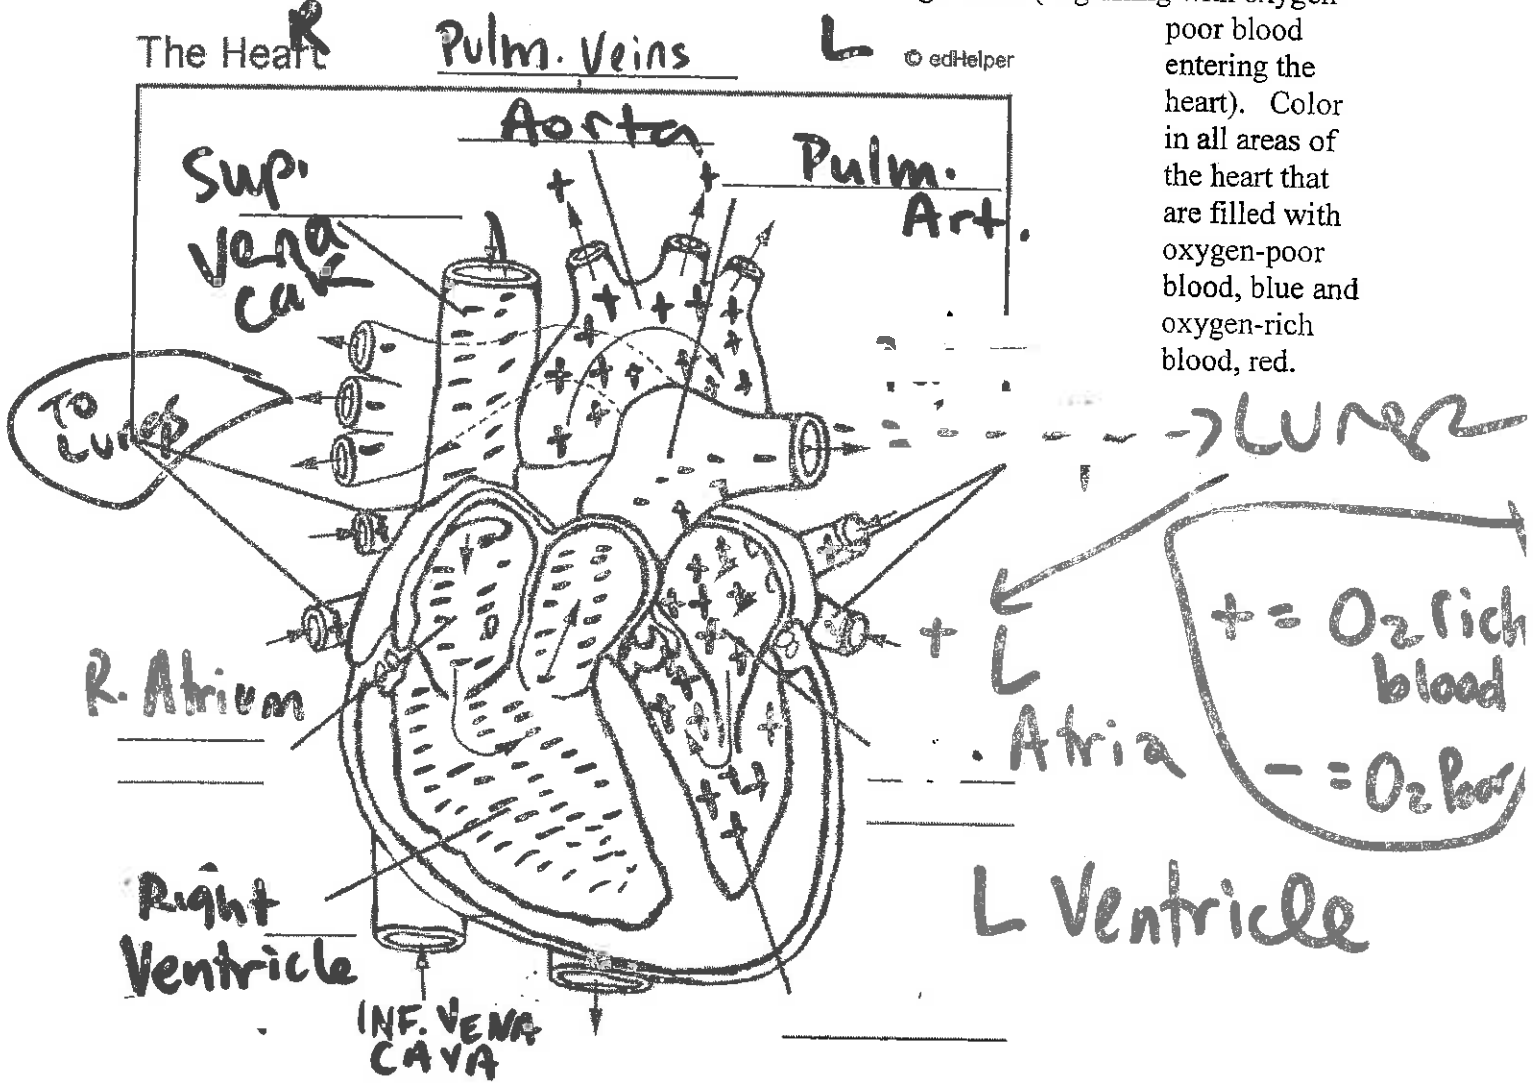 The Heart
R
Pulm. Veins
L
© edHelper
poor blood
entering the
heart). Color
in all areas of
the heart that
are filled with
oxygen-poor
blood, blue and
oxygen-rich
blood, red.
Aorta
Pulm.
Art.
Sup.
Vena
Cav
To
Lungs
R. Atrium
L
Atria
+ = O2 rich
blood
- = O2 Poor
Right
Ventricle
L Ventricle
INF. VENA
CAVA